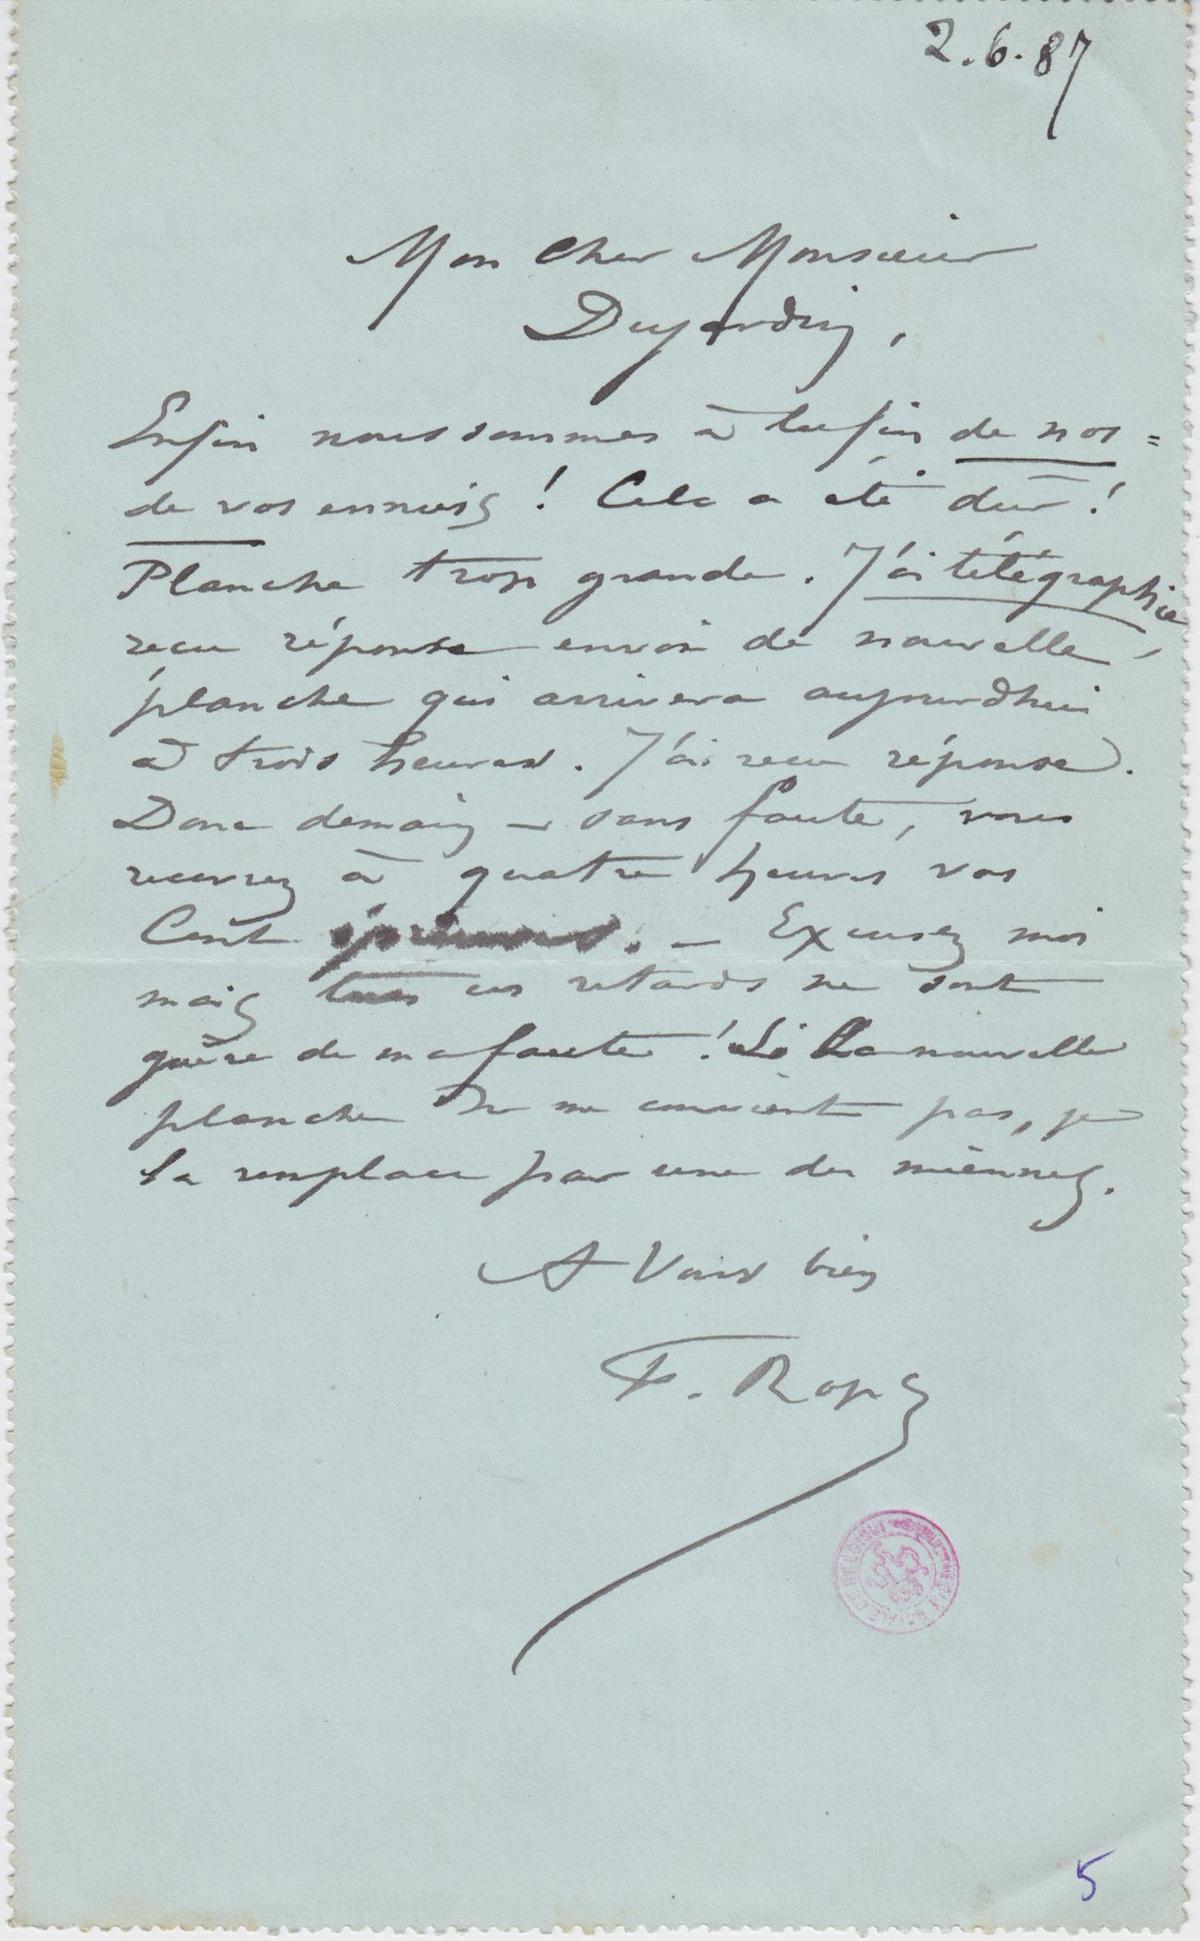 2.6.87
Mon cher Monsieur
Dujardin,
Enfin nous sommes à la fin de nos =
de vos ennuis ! Cela a été dur !
Planche trop grande. J'ai télégraphié
recu réponse envoi de nouvelle
planche qui arrivera aujourdhui
à trois heures. J'ai recu réponse.
Donc demain – sans faute, vous
recevrez à quatre heures vos
Cent épreuves. – Excusez moi
mais tous ces retards ne sont
guère de ma faute ! Si la nouvelle
planche ne me convient pas, je
la remplace par une des miennes.
A Vous bien
F. Rops
5